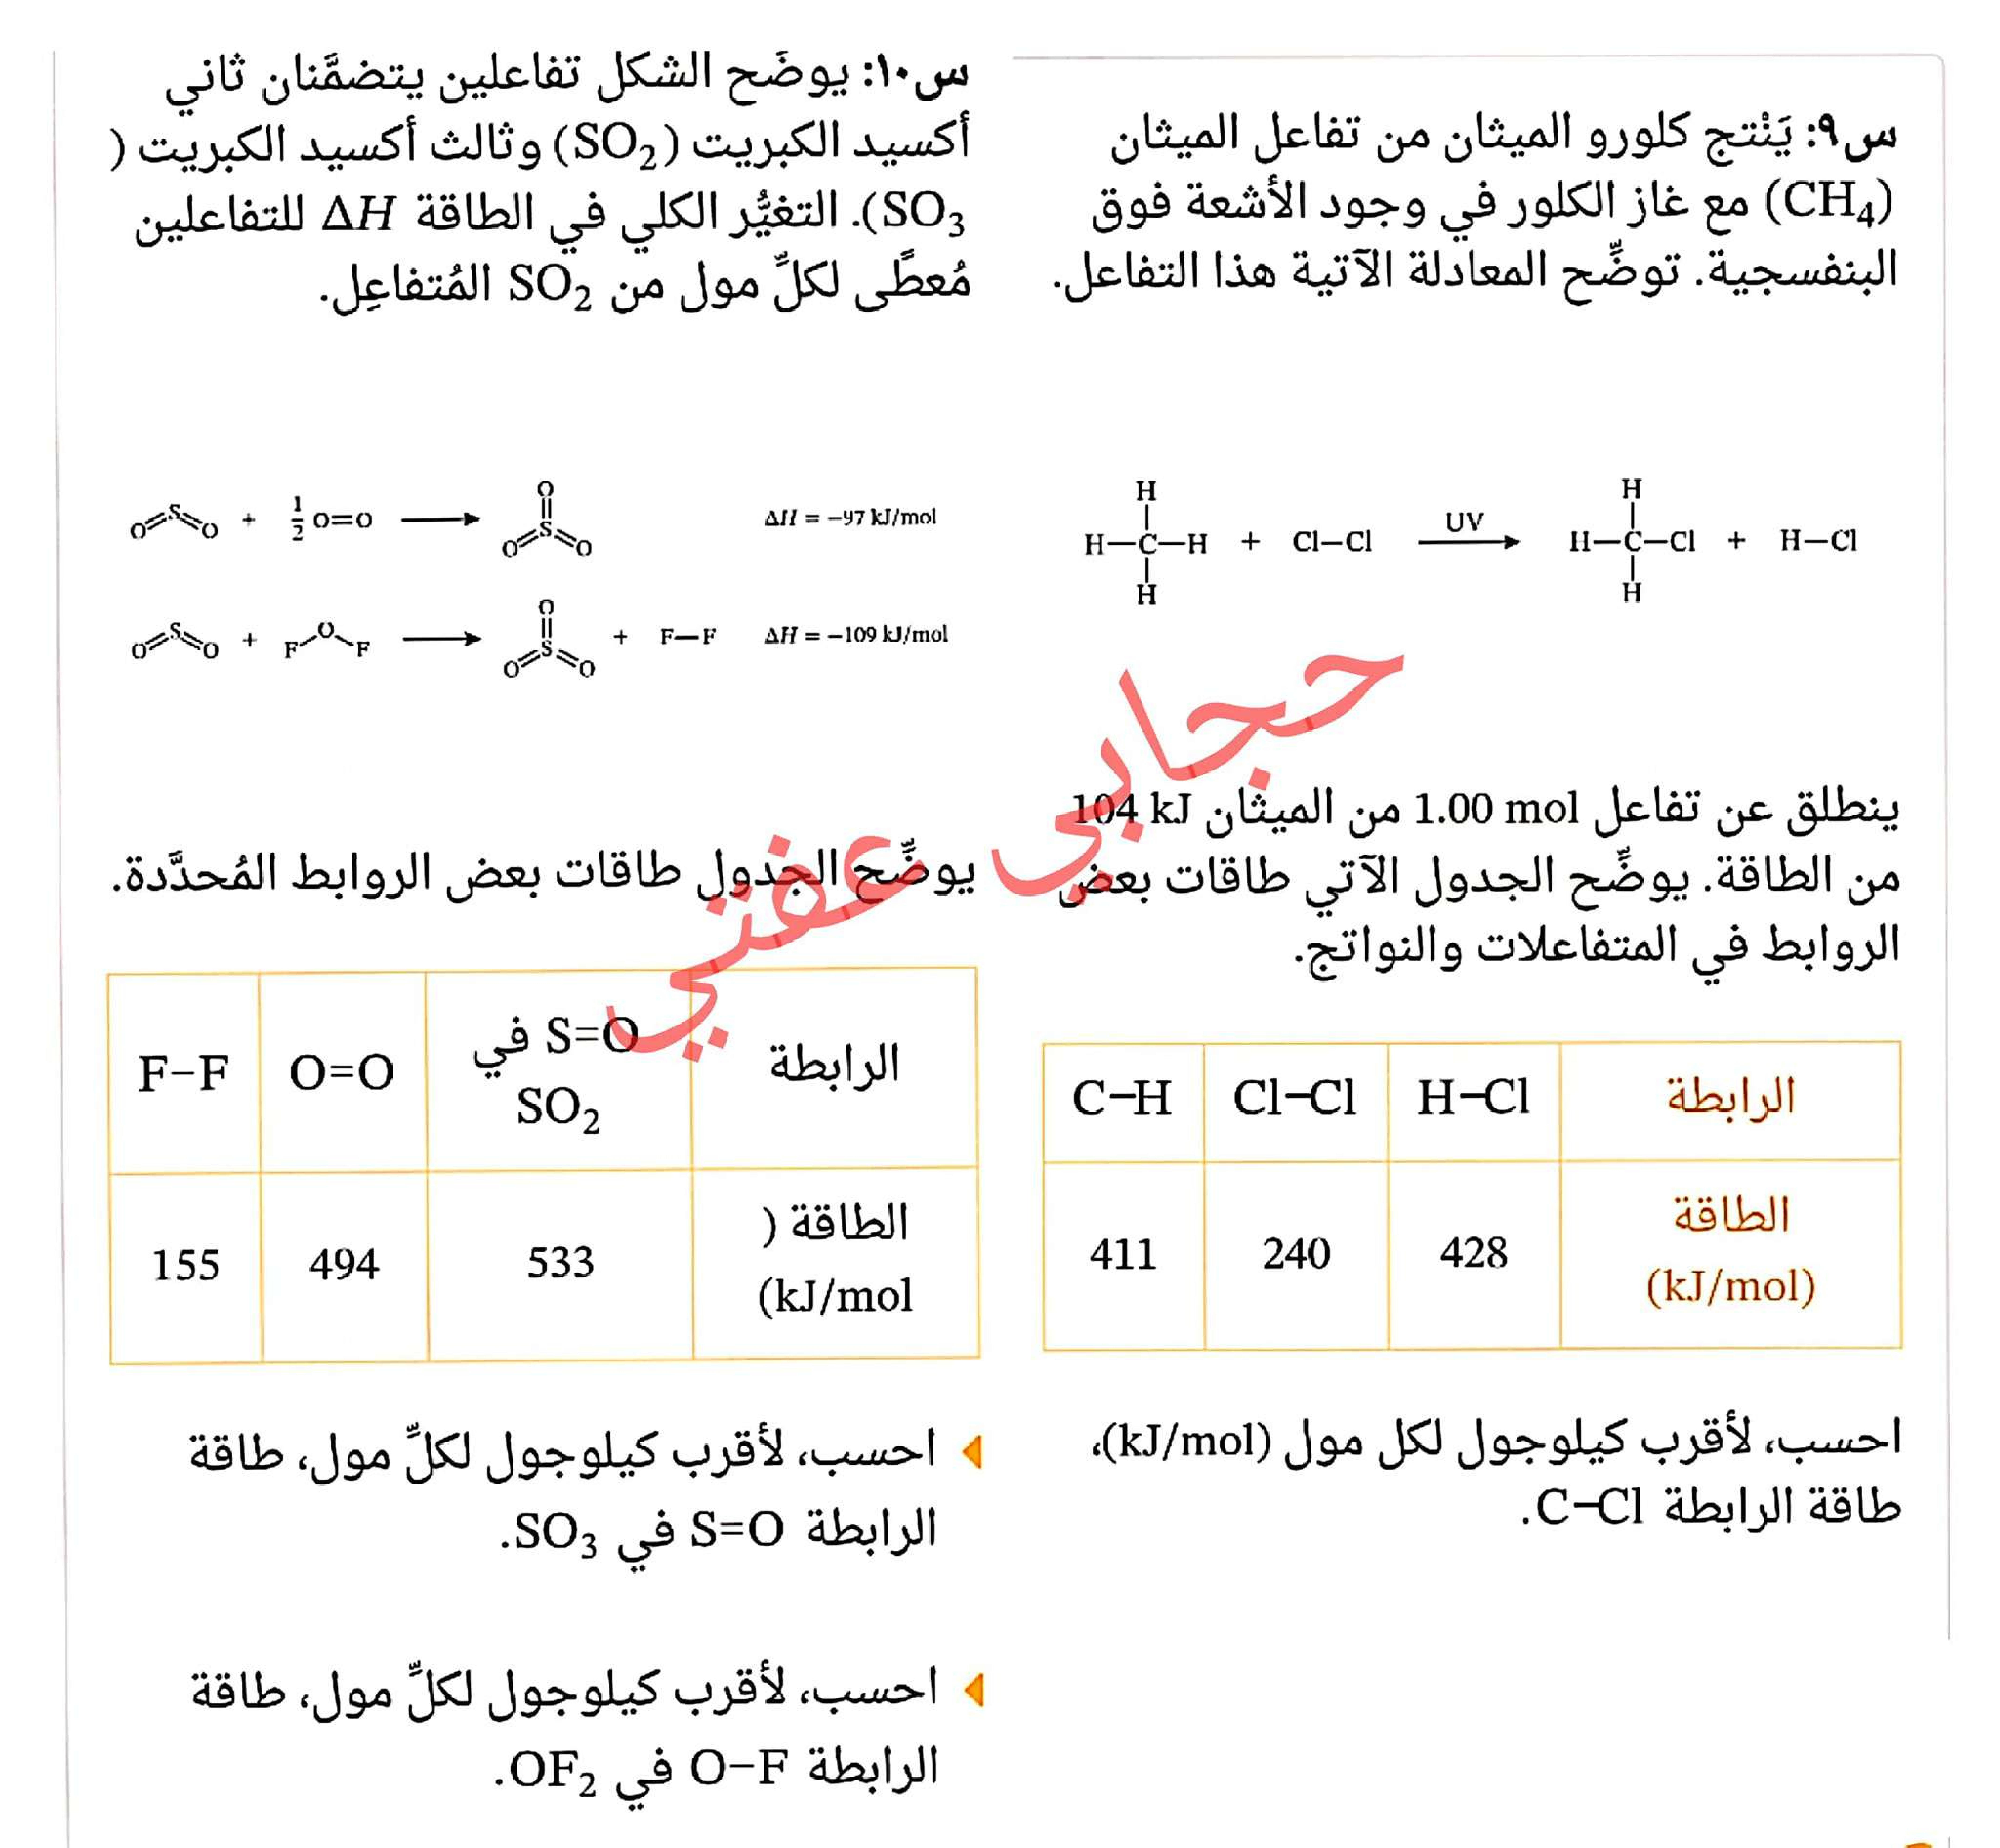 س٩: يَنْتج كلورو الميثان من تفاعل الميثان
(CH₄) مع غاز الكلور في وجود الأشعة فوق
البنفسجية. توضِّح المعادلة الآتية هذا التفاعل.
H
H—C—H + Cl—Cl
H
UV
H
H—C—Cl + H—Cl
H
ينطلق عن تفاعل 1.00 mol من الميثان 104 kJ
من الطاقة. يوضِّح الجدول الآتي طاقات بعض
الروابط في المتفاعلات والنواتج.
الرابطة H–Cl Cl–Cl C–H
الطاقة
(kJ/mol) 428 240 411
احسب، لأقرب كيلوجول لكل مول (kJ/mol)،
طاقة الرابطة C–Cl.
س١٠: يوضَح الشكل تفاعلين يتضمَّنان ثاني
أكسيد الكبريت (SO₂) وثالث أكسيد الكبريت (
SO₃). التغيُّر الكلي في الطاقة ΔH للتفاعلين
مُعطًى لكلِّ مول من SO₂ المُتفاعِل.
O=S=O + ½ O=O ⟶ O=S(=O)=O ΔH = −97 kJ/mol
O=S=O + F—O—F ⟶ O=S(=O)=O + F—F ΔH = −109 kJ/mol
يوضِّح الجدول طاقات بعض الروابط المُحدَّدة.
الرابطة S=O في SO₂ O=O F–F
الطاقة (
kJ/mol) 533 494 155
احسب، لأقرب كيلوجول لكلِّ مول، طاقة
الرابطة S=O في SO₃.
احسب، لأقرب كيلوجول لكلِّ مول، طاقة
الرابطة O–F في OF₂.
حجابي عفتي